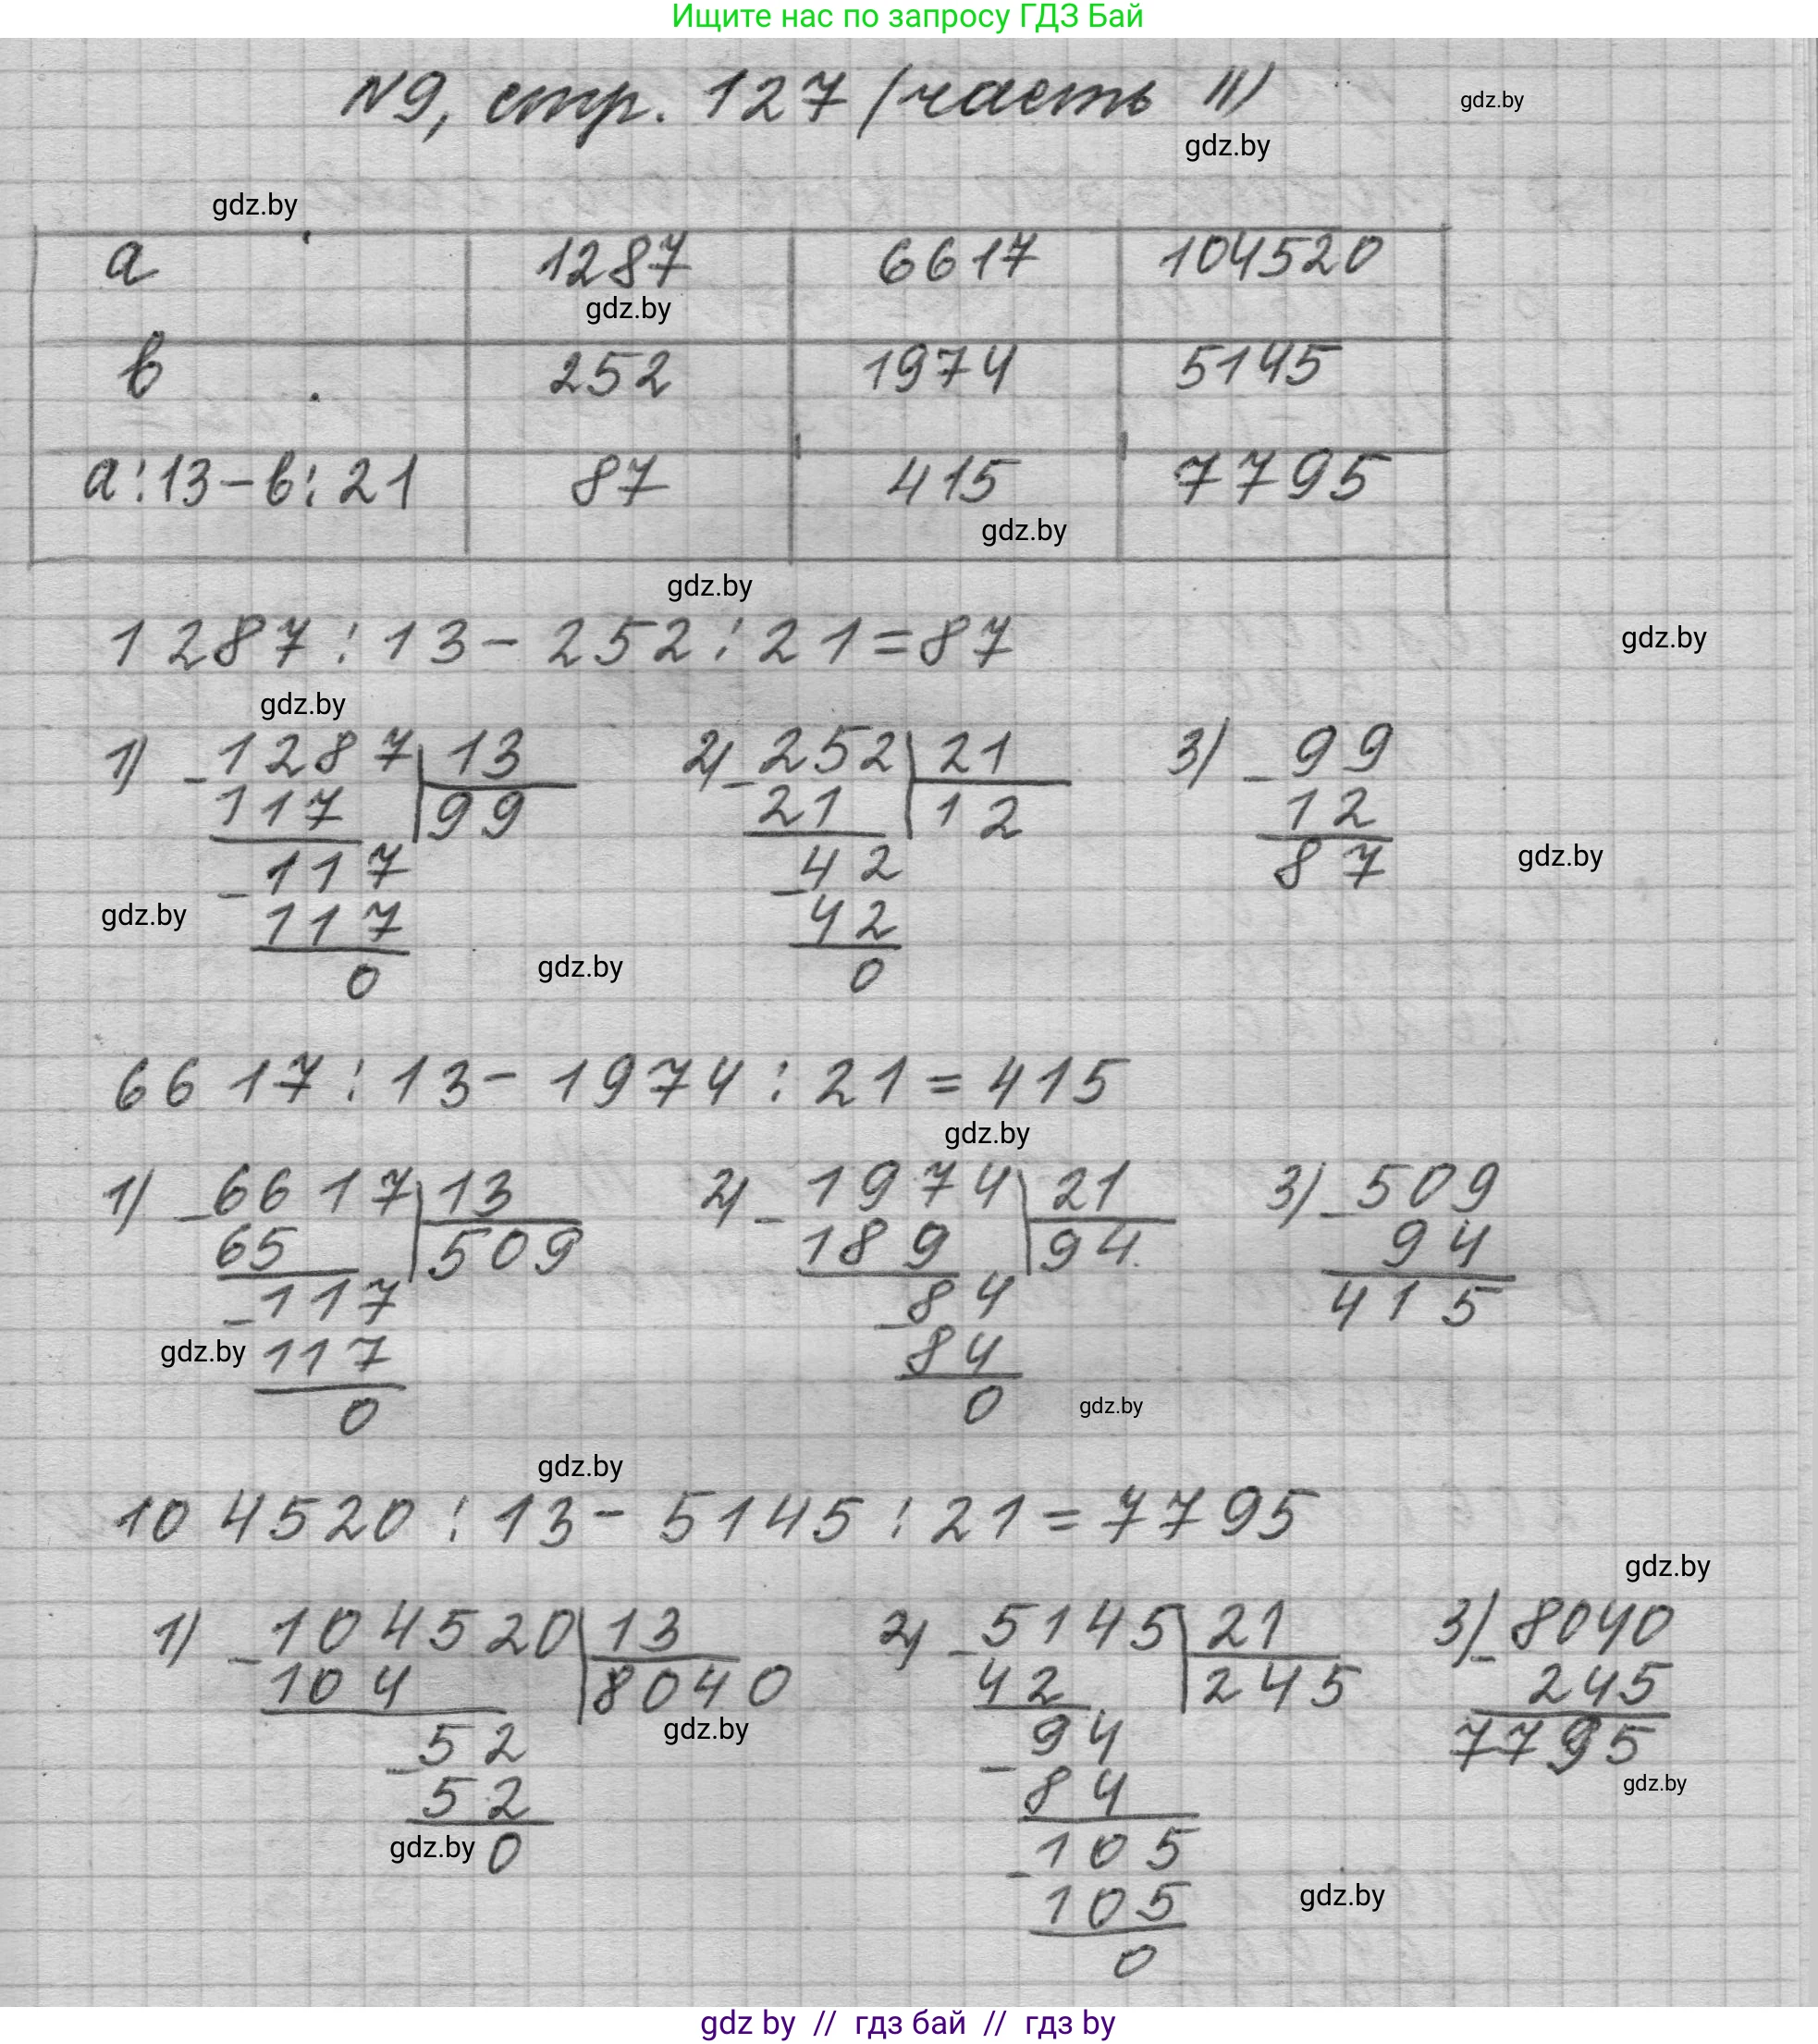 Ищите нас по запросу ГДЗ Бай
№9, стр. 127 (часть II)
gdz.by
gdz.by
gdz.by
a 1287 6617 104520
gdz.by
в 252 1974 5145
a:13-в:21 87 415 7795
gdz.by
gdz.by
1287:13-252:21=87
gdz.by
gdz.by
1) -1287 13 2) -252 21 3) -99
117 99 21 12 12
-117 -42 87
gdz.by
gdz.by
117 42
gdz.by
0 0
6617:13-1974:21=415
gdz.by
1) -6617 13 2) -1974 21 3) -509
65 509 189 94. 94
-117 -84 415
gdz.by
117 84
0 0
gdz.by
gdz.by
104520:13-5145:21=7795
gdz.by
1) -104520 13 2) -5145 21 3) -8040
104 8040 42 245 245
gdz.by
-52 -94 7795
gdz.by
52 84
gdz.by
0 -105
105
gdz.by
0
gdz by // гдз бай // гдз by